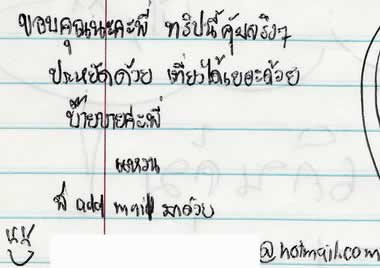 ขอบคุณนะคะพี่ ทริปนี้คุ้มจริงๆ
ประหยัดด้วย เที่ยวได้เยอะด้วย
บ๊ายบายค่ะพี่
แหวน
พี่ add mail มาด้วย
@hotmail.com